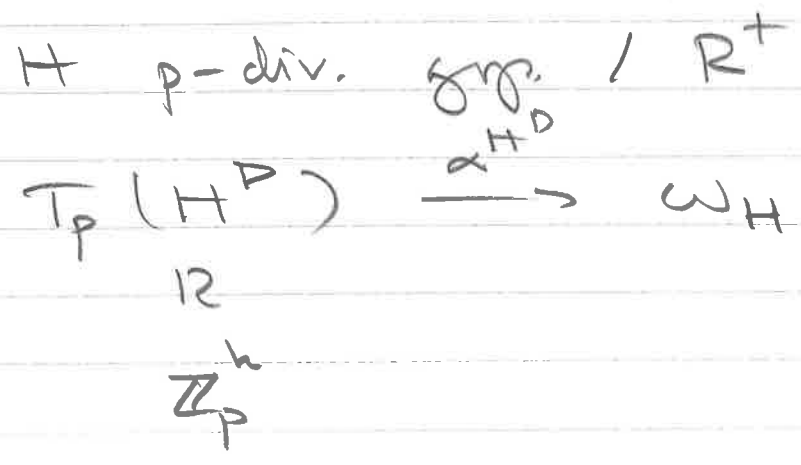 H p-div. grp. / R⁺
T_p (H^D) \xrightarrow{α^{H^D}} ω_H
≀≀
ℤ_p^h